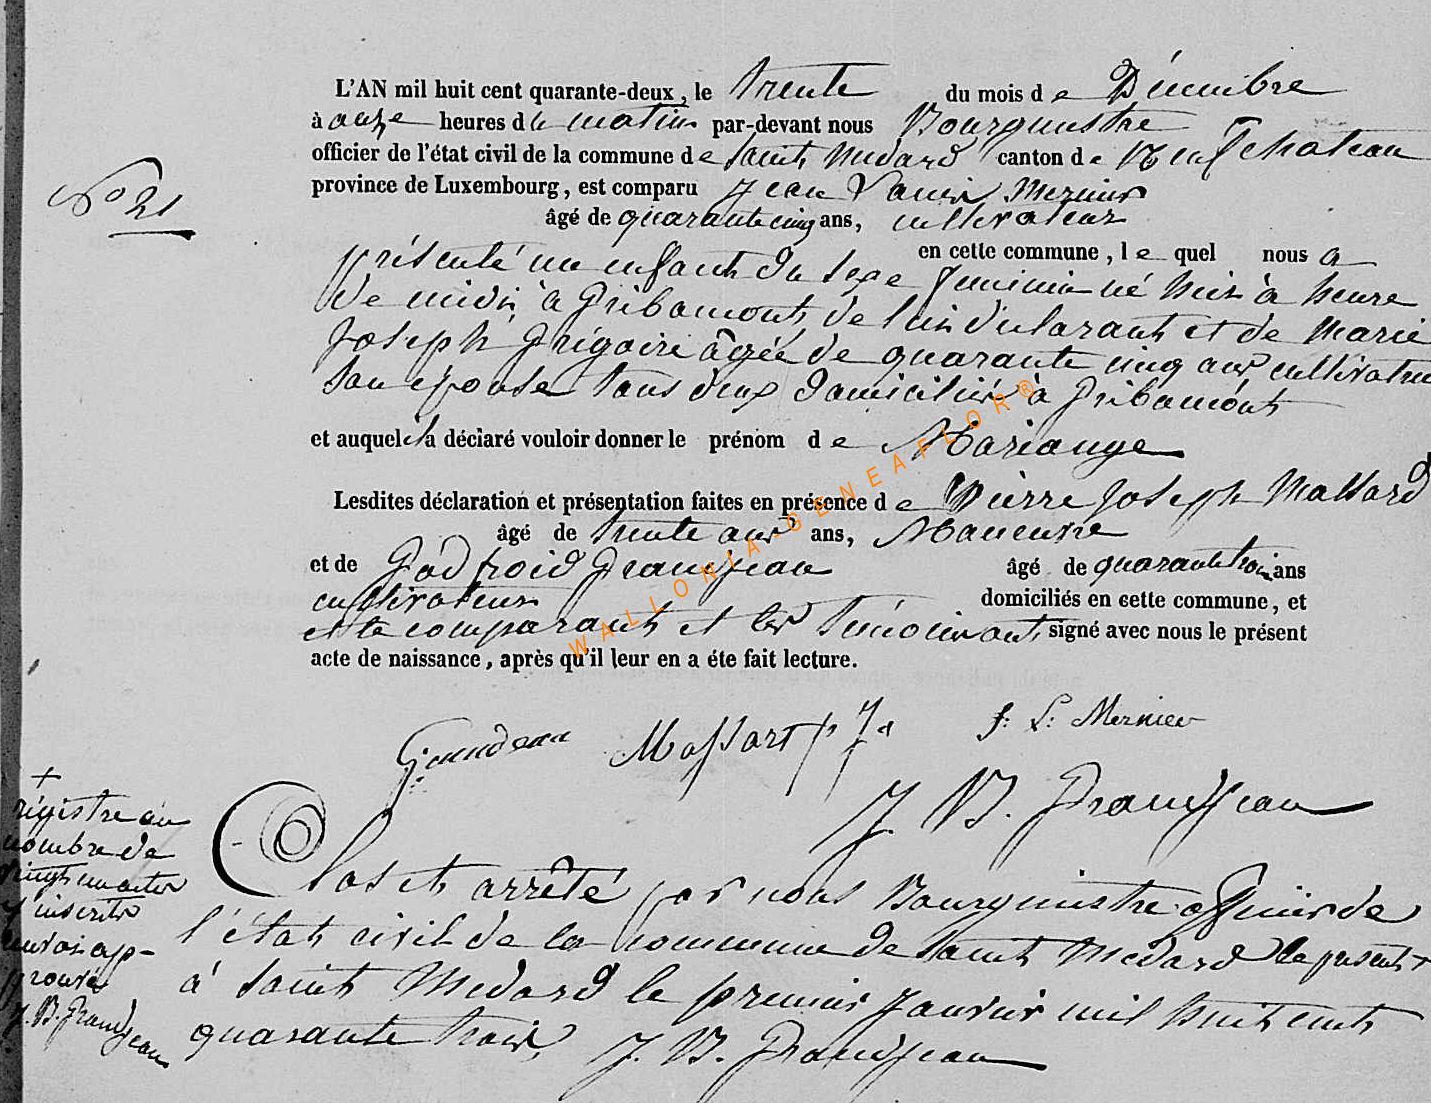 L'AN mil huit cent quarante-deux, le trente du mois de Décembre
à onze heures du matin par-devant nous Bourgmestre
officier de l'état civil de la commune de Saint Médard canton de Neufchateau
N° 21
province de Luxembourg, est comparu Jean Louis Mernier
âgé de quarante cinq ans, cultivateur
en cette commune, lequel nous a
présenté un enfant du sexe feminin né hier à heure
de midi à Gribamont, de lui déclarant et de Marie
Joseph Grégoire âgée de quarante cinq ans cultivatrice
son epouse tous deux domiciliés à Gribamont
et auquel il a déclaré vouloir donner le prénom de Mariange
Lesdites déclaration et présentation faites en présence de Pierre Joseph Massard
âgé de trente ans, Manœuvre
et de Godfroid Grandjean âgé de quarante trois ans
cultivateur domiciliés en cette commune, et
et le comparant et les témoins ont signé avec nous le présent
acte de naissance, après qu'il leur en a éte fait lecture.
WALLONIA-GENEAFLOR®
Grandjean Massart pr Js J: L: Mernier
J. B. Grandjean
+
régistre au
nombre de
vingt un actes
y inscrits
renvoi ap-
prouvé
J. B. Grandjean
Clos et arrêté par nous Bourgmestre officier de
l'état civil de la commune de Saint Médard le présent +
à Saint Médard le premier Janvier mil huit cent
quarante trois,
J. B. Grandjean